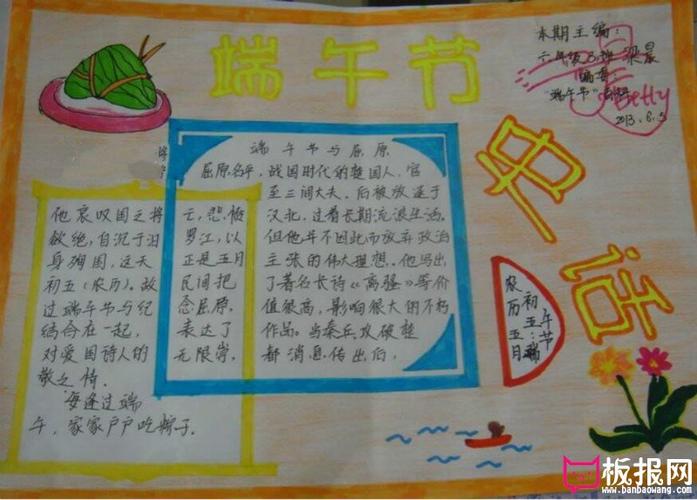 端午节
本期主编：
六年级3班 梁晨
编委：
"端午节"
Pretty
2013.6.5
史话
端午节与屈原
屈原名平，战国时代的楚国人，官
至三闾大夫，后被放逐于
汉北，过着长期流浪生活，
但他并不因此而放弃政治
主张的伟大理想，他写出
了著名长诗《离骚》等价
值很高，影响很大的不朽
作品。当秦兵攻破楚
都消息传出后，
他哀叹国之将亡，悲愤
欲绝，自沉于汨罗江，以
身殉国，这天正是五月
初五（农历）。故民间把
过端午节与纪念屈原
结合在一起，表达了
对爱国诗人的无限崇
敬之情。
每逢过端
午，家家户户吃粽子。
农历五月
初五：端
午节
板报网
www.banbaowang.com